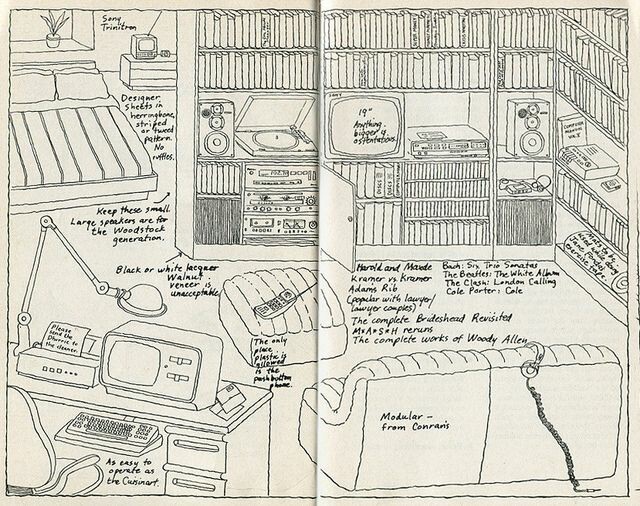 Sony
Trinitron
Designer
Sheets in
herringbone,
striped
or tweed
pattern.
No
ruffles.
Keep these small.
Large speakers are for
the Woodstock
generation.
Black or white lacquer
Walnut
veneer is
unacceptable
Please
send the
Dhurrie to
the cleaner.
The only
place
plastic is
allowed
is the
pushbutton
phone.
As easy to
operate as
the Cuisinart.
SONY
19"
Anything
bigger is
ostentatious.
COMPUTER
MANUAL
VOL. X
Harold and Maude
Kramer vs. Kramer
Adam's Rib
(popular with lawyer/
lawyer couples)
The complete Brideshead Revisited
M*A*S*H reruns
The complete works of Woody Allen
Bach: Six Trio Sonatas
The Beatles: The White Album
The Clash: London Calling
Cole Porter: Cole
Mats to be
used when doing
Jane Fonda's
exercise tape.
Modular –
from Conran's